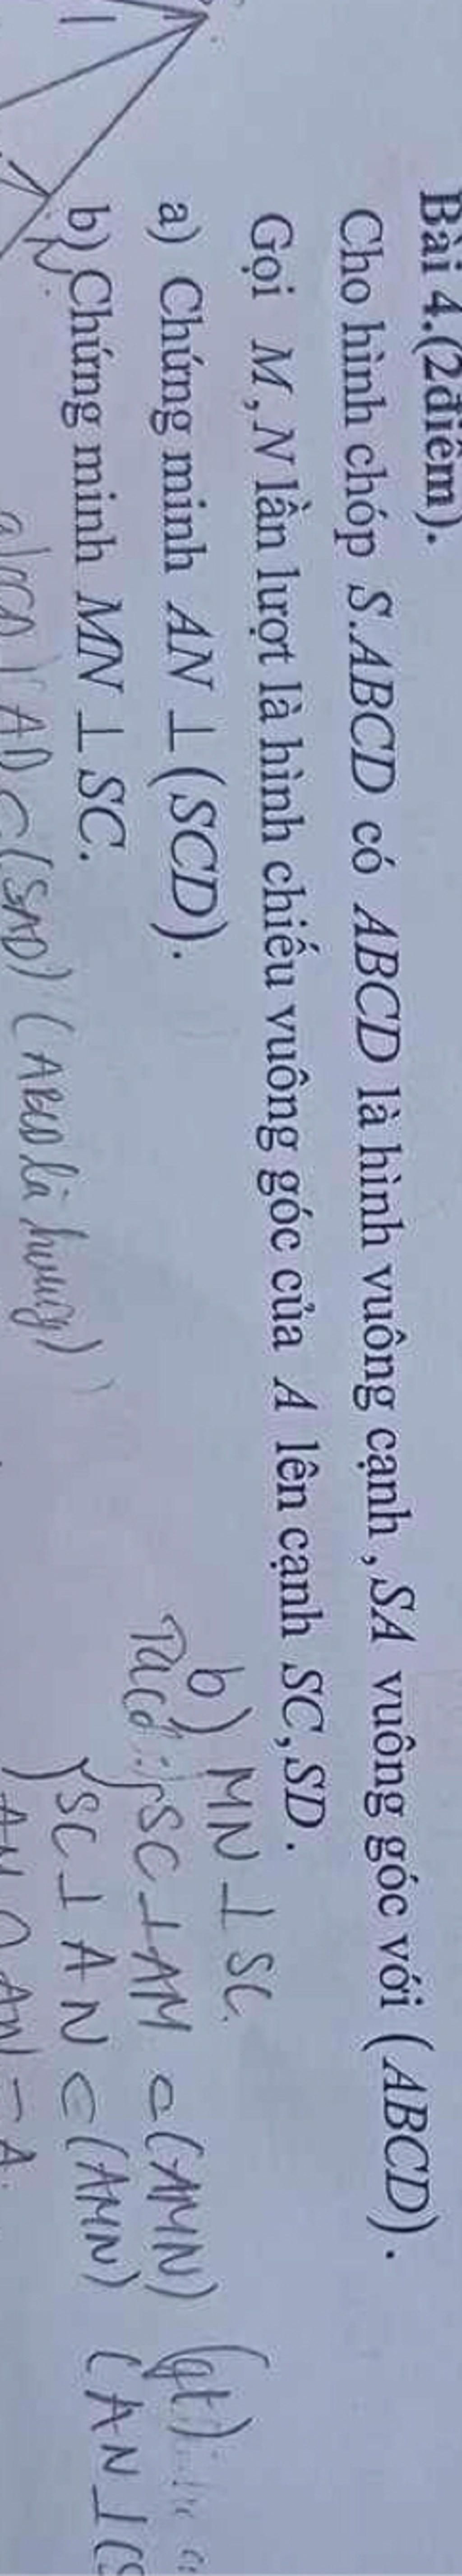 Bài 4.(2điểm).
Cho hình chóp S.ABCD có ABCD là hình vuông cạnh , SA vuông góc với (ABCD).
Gọi M , N lần lượt là hình chiếu vuông góc của A lên cạnh SC, SD .
a) Chứng minh AN ⊥ (SCD).
b) Chứng minh MN ⊥ SC.
b) MN ⊥ SC.
Ta có: SC ⊥ AM ⊂ (AMN) (gt)
SC ⊥ AN ⊂ (AMN) (AN ⊥ (S
AM ∩ AN = A.
AD ⊂ (SAD) (ABCD là hvuông)
N